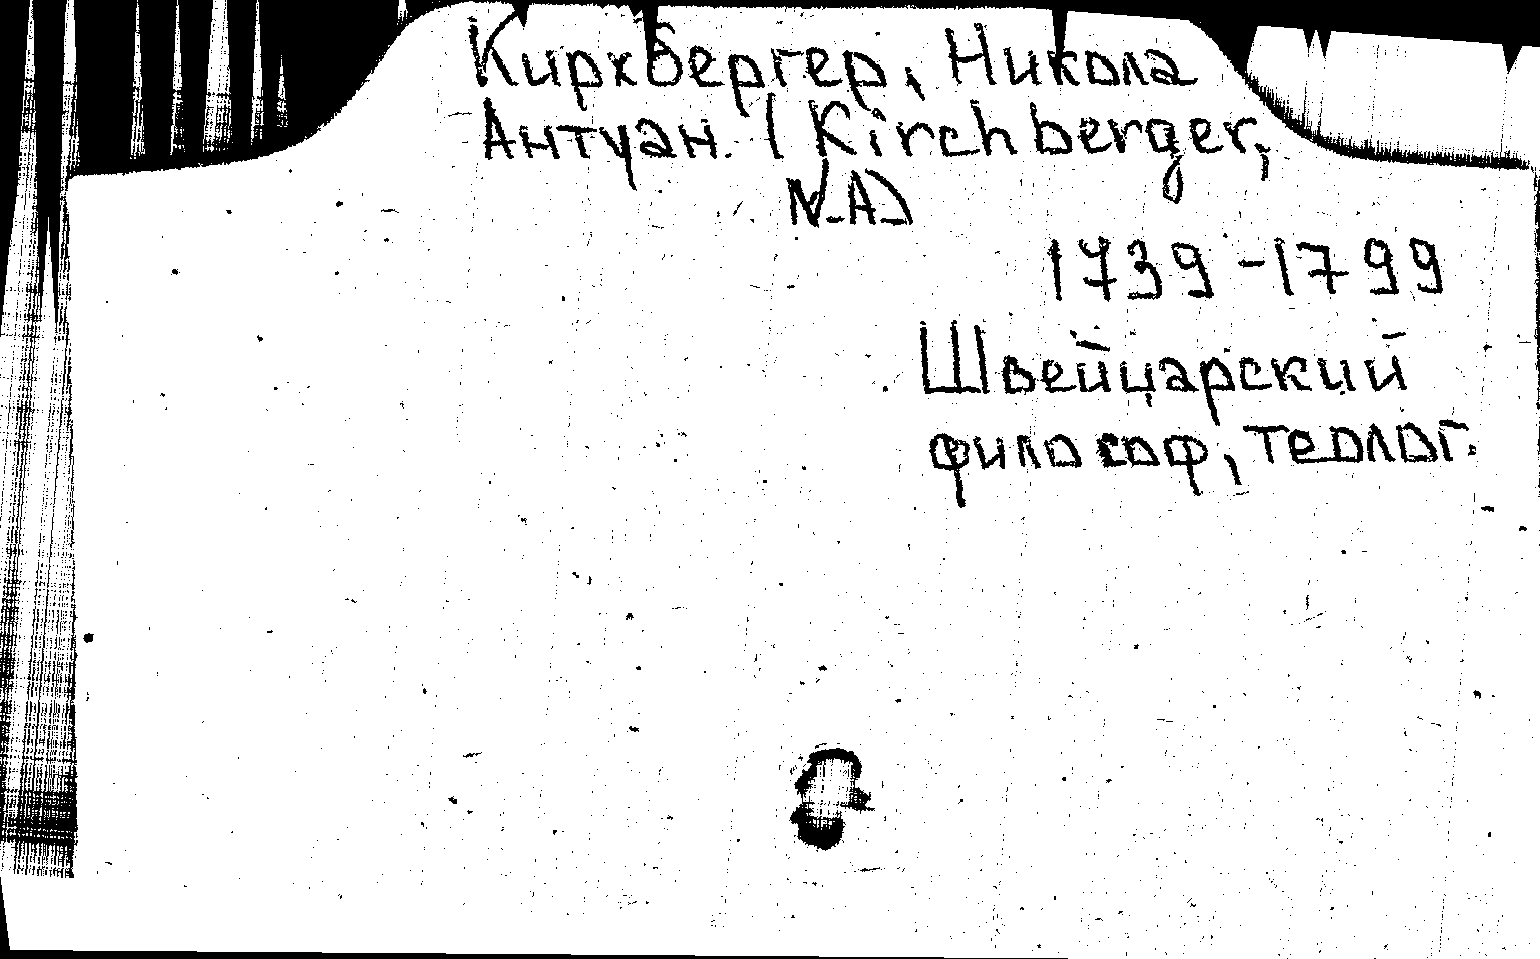 Кирхбергер, Никола
Антуан. (Kirchberger,
N.A)
1739-1799
Швейцарский
философ, теолог.